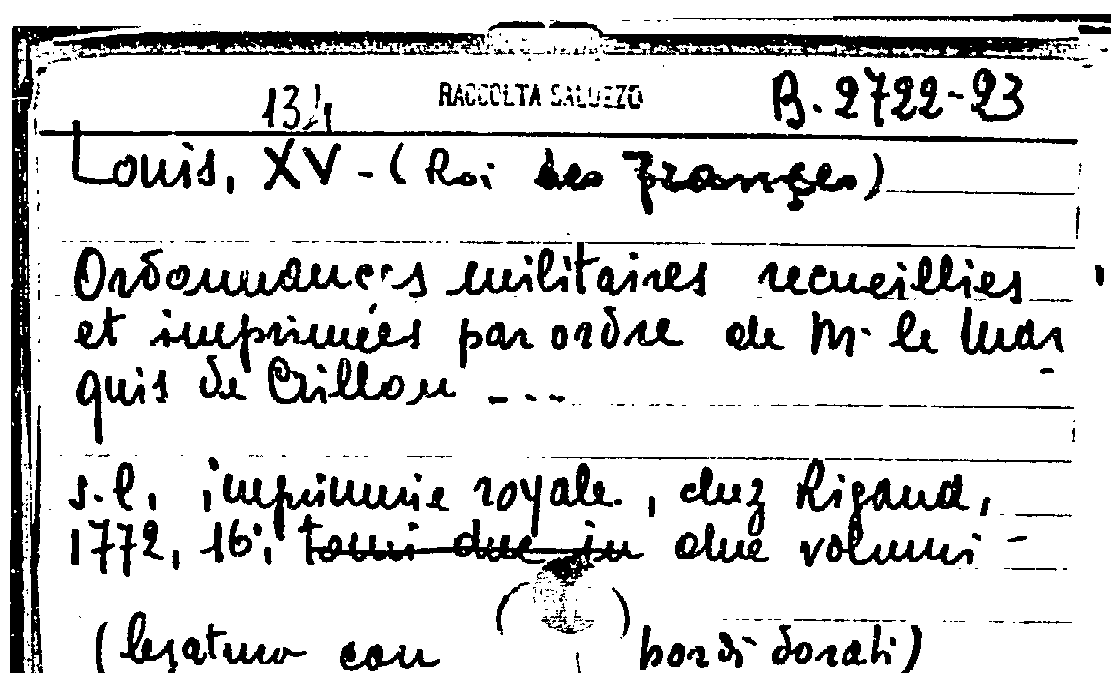 134 RACCOLTA SALUZZO B. 2722-23
Louis, XV - (Roi des Français)
Ordonnances militaires recueillies
et imprimées par ordre de Mr le Mar
quis de Crillon ---
s.l. imprimerie royale, chez Rigaud,
1772, 16°, tomi due in due volumi -
(legatura con bordi dorati)